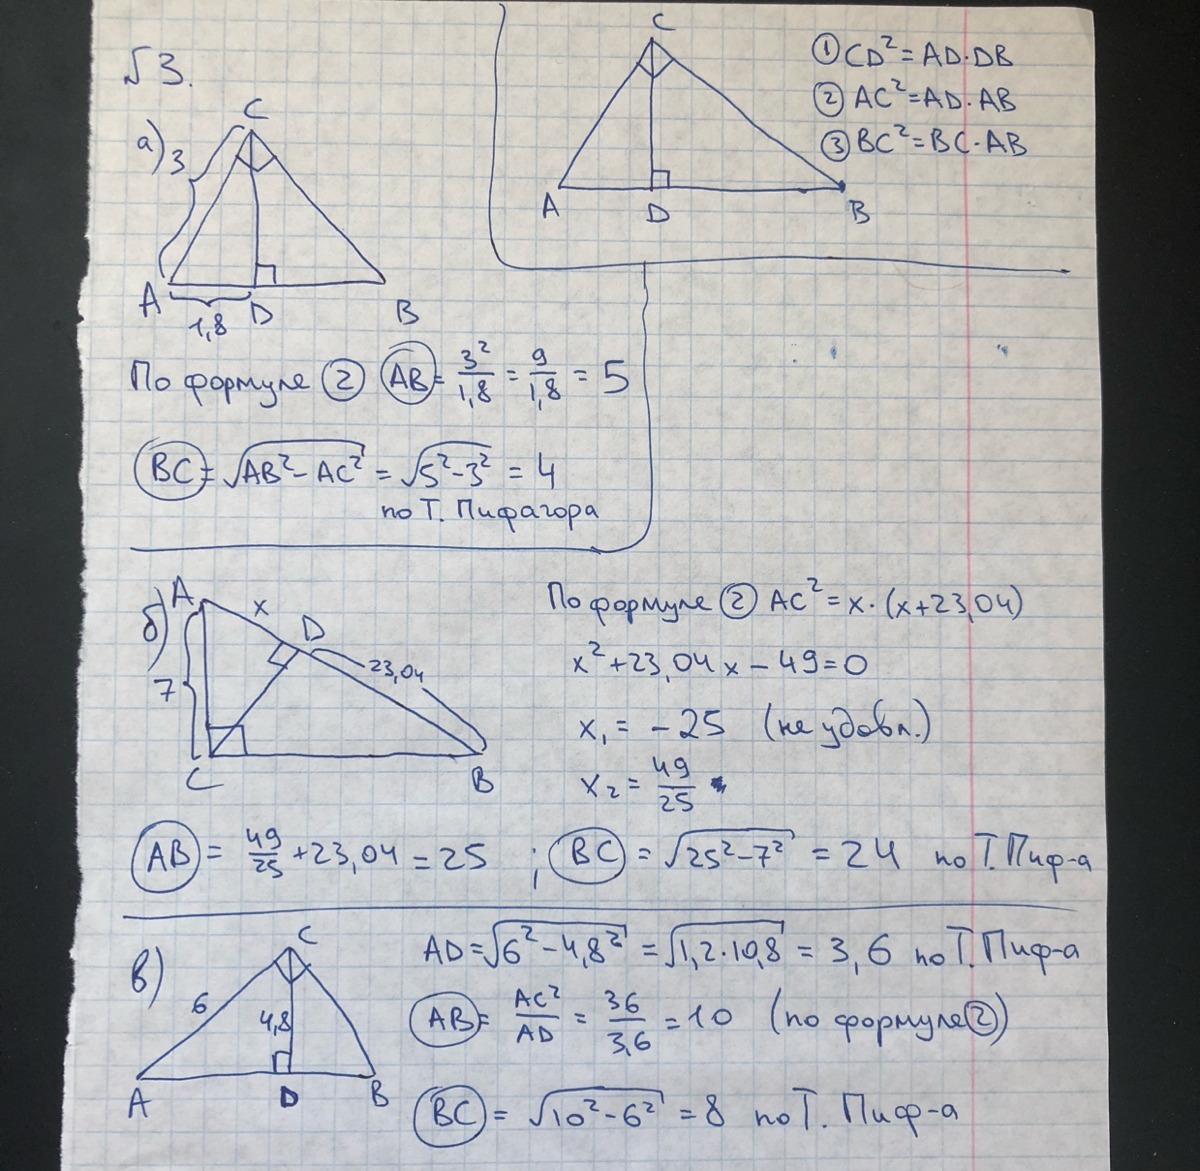 √3.
C
① CD² = AD·DB
② AC² = AD·AB
③ BC² = BC·AB
A D B
а) 3
C
A D B
1,8
По формуле ② AB = 3²/1,8 = 9/1,8 = 5
BC = √(AB² - AC²) = √(5² - 3²) = 4
по Т. Пифагора
б) A x D
23,04
7
C B
По формуле ② AC² = x·(x+23,04)
x² + 23,04x - 49 = 0
x₁ = -25 (не удовл.)
x₂ = 49/25
AB = 49/25 + 23,04 = 25 ; BC = √(25² - 7²) = 24 по Т. Пиф-а
в) C
6 4,8
A D B
AD = √(6² - 4,8²) = √(1,2·10,8) = 3,6 по Т. Пиф-а
AB = AC²/AD = 36/3,6 = 10 (по формуле ②)
BC = √(10² - 6²) = 8 по Т. Пиф-а